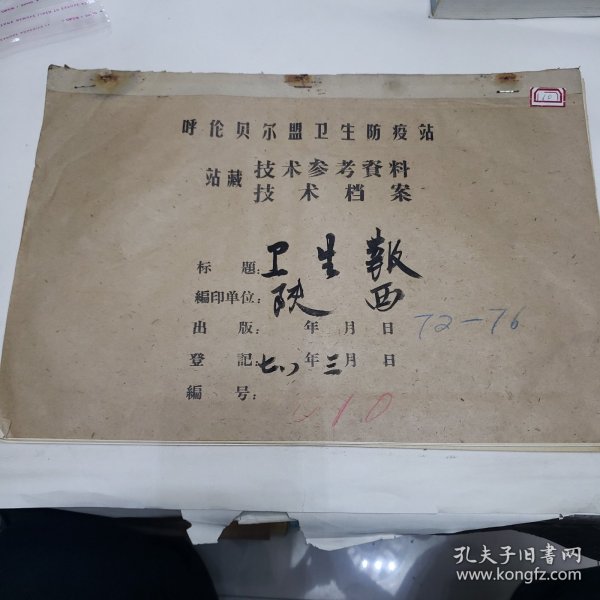 10
呼伦贝尔盟卫生防疫站
站藏 技术参考資料
技术档案
标題: 卫生報
編印单位: 陕西
出版: 年 月 日 72-76
登記: 七八年三月 日
編号: 010
孔夫子旧书网
www.kongfz.com